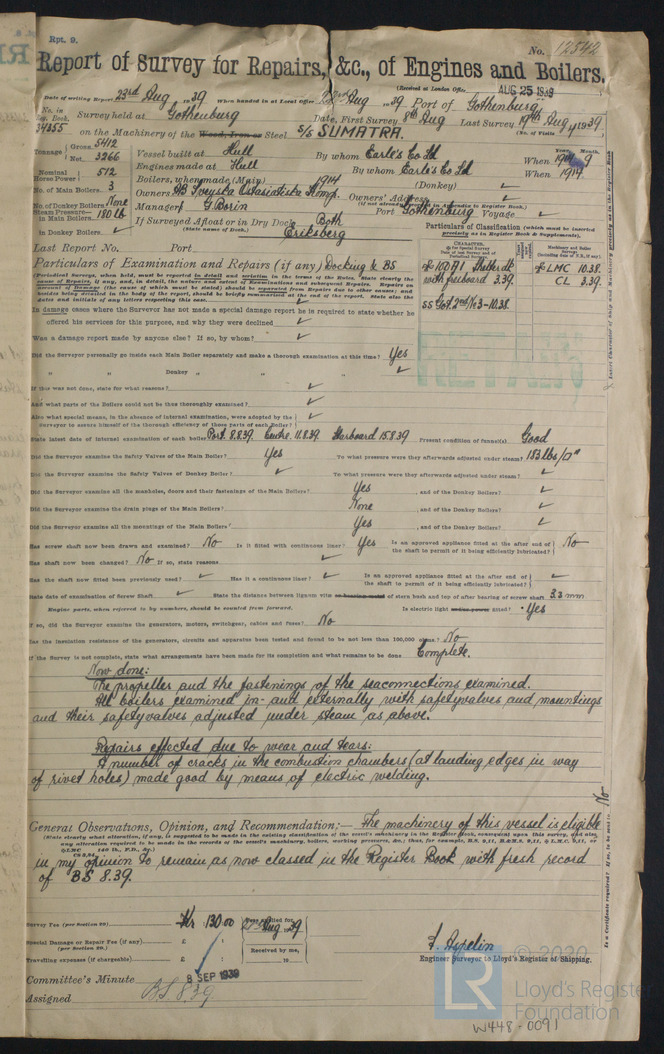 Rpt. 9.
No. 12542
Report of Survey for Repairs, &c., of Engines and Boilers.
(Received at London Office AUG 25 1939
Date of writing Report 23rd Aug 1939 When handed in at Local Office Aug 1939 Port of Gothenburg
No. in Reg. Book. Survey held at Gothenburg Date, First Survey 8th Aug Last Survey 19th Aug 1939
34355 on the Machinery of the Wood, Iron or Steel S/S SUMATRA. (No. of Visits 4
Tonnage Gross 5412
Net 3266
Vessel built at Hull By whom Earle's Co Ld When 1914 9
Nominal Horse Power 512
Engines made at Hull By whom Earle's Co Ld When 1914
No. of Main Boilers 3
Boilers, when made (Main) 1914 (Donkey) ✓
No. of Donkey Boilers None
Owners AB Svenska Ostasiatiska Komp. Owners' Address
(if not already recorded in Appendix to Register Book.)
Steam Pressure— in Main Boilers 180 lb
Managers G Borin Port Gothenburg Voyage ✓
in Donkey Boilers ✓
If Surveyed Afloat or in Dry Dock Both
(State name of Dock.) Eriksberg
Particulars of Classification (which must be inserted precisely as in Register Book & Supplements).
Last Report No. Port
Particulars of Examination and Repairs (if any) Docking & BS
✠ 100A1 Shelterdk ✠ LMC 10.38.
with freeboard 3.39. CL 3.39.
SS Got 2nd No3-10.38.
(Periodical Surveys, when held, must be reported in detail and seriatim in the terms of the Rules. State clearly the cause of Repairs, if any, and, in detail, the nature and extent of Examinations and consequent Repairs. Repairs on account of Damage (the cause of which must be stated) should be separated from Repairs due to other causes; and besides being detailed in the body of the report, should be briefly summarised at the end of the report. State also the dates and initials of any letters respecting this case.
In damage cases where the Surveyor has not made a special damage report he is required to state whether he offered his services for this purpose, and why they were declined ✓
Was a damage report made by anyone else? If so, by whom? ✓
Did the Surveyor personally go inside each Main Boiler separately and make a thorough examination at this time? Yes
" " Donkey " " " ✓
If this was not done, state for what reasons? ✓
And what parts of the Boilers could not be thus thoroughly examined? ✓
Also what special means, in the absence of internal examination, were adopted by the Surveyor to assure himself of the thorough efficiency of those parts of each Boiler? ✓
State latest date of internal examination of each boiler Port 8.8.39. Centre 11.8.39. Starboard 15.8.39 Present condition of funnel(s) Good
Did the Surveyor examine the Safety Valves of the Main Boiler? Yes To what pressure were they afterwards adjusted under steam? 183 lbs/□"
Did the Surveyor examine the Safety Valves of Donkey Boiler? ✓ To what pressure were they afterwards adjusted under steam? ✓
Did the Surveyor examine all the manholes, doors and their fastenings of the Main Boilers? Yes , and of the Donkey Boilers? ✓
Did the Surveyor examine the drain plugs of the Main Boilers? None , and of the Donkey Boilers? ✓
Did the Surveyor examine all the mountings of the Main Boilers? Yes , and of the Donkey Boilers? ✓
Has screw shaft now been drawn and examined? No Is it fitted with continuous liner? Yes Is an approved appliance fitted at the after end of the shaft to permit of it being efficiently lubricated? No
Has shaft now been changed? No If so, state reasons ✓
Has the shaft now fitted been previously used? ✓ Has it a continuous liner? ✓ Is an approved appliance fitted at the after end of the shaft to permit of it being efficiently lubricated? ✓
State date of examination of Screw Shaft ✓ State the distance between lignum vitæ or bearing metal of stern bush and top of after bearing of screw shaft 3.3 mm
Engine parts, when referred to by numbers, should be counted from forward. Is electric light and/or power fitted? Yes
If so, did the Surveyor examine the generators, motors, switchgear, cables and fuses? No
Has the insulation resistance of the generators, circuits and apparatus been tested and found to be not less than 100,000 ohms? No
If the Survey is not complete, state what arrangements have been made for its completion and what remains to be done Complete.
Now done:
The propeller and the fastenings of the seaconnections examined.
All boilers examined in- and externally with safetyvalves and mountings
and their safetyvalves adjusted under steam as above.
Repairs effected due to wear and tears:
A number of cracks in the combustion chambers (at landing edges in way
of rivet holes) made good by means of electric welding.
General Observations, Opinion, and Recommendation:— The machinery of this vessel is eligible
(State clearly what alteration, if any, is suggested to be made in the existing classification of the vessel's machinery in the Register Book, consequent upon this survey, and also,
in my opinion to remain as now classed in the Register Book with fresh record
of BS 8.39.
Survey Fee (per Section 29) Kr 130.00 Fees applied for Aug 39
Special Damage or Repair Fee (if any) (per Section 29.) £ : Received by me,
Travelling expenses (if chargeable) £ : 19
Engineer Surveyor to Lloyd's Register of Shipping.
Committee's Minute 8 SEP 1939
Assigned BS 8.39
Is a Certificate required? If so, to be sent to. No
© 2020
LR
Lloyd's Register
Foundation
W448-0091